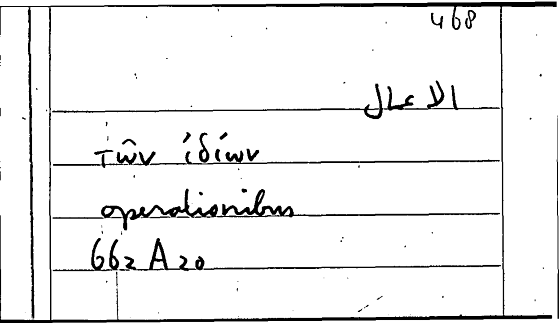 468
الاعمال
τῶν ἰδίων
operationibus
662 A 20